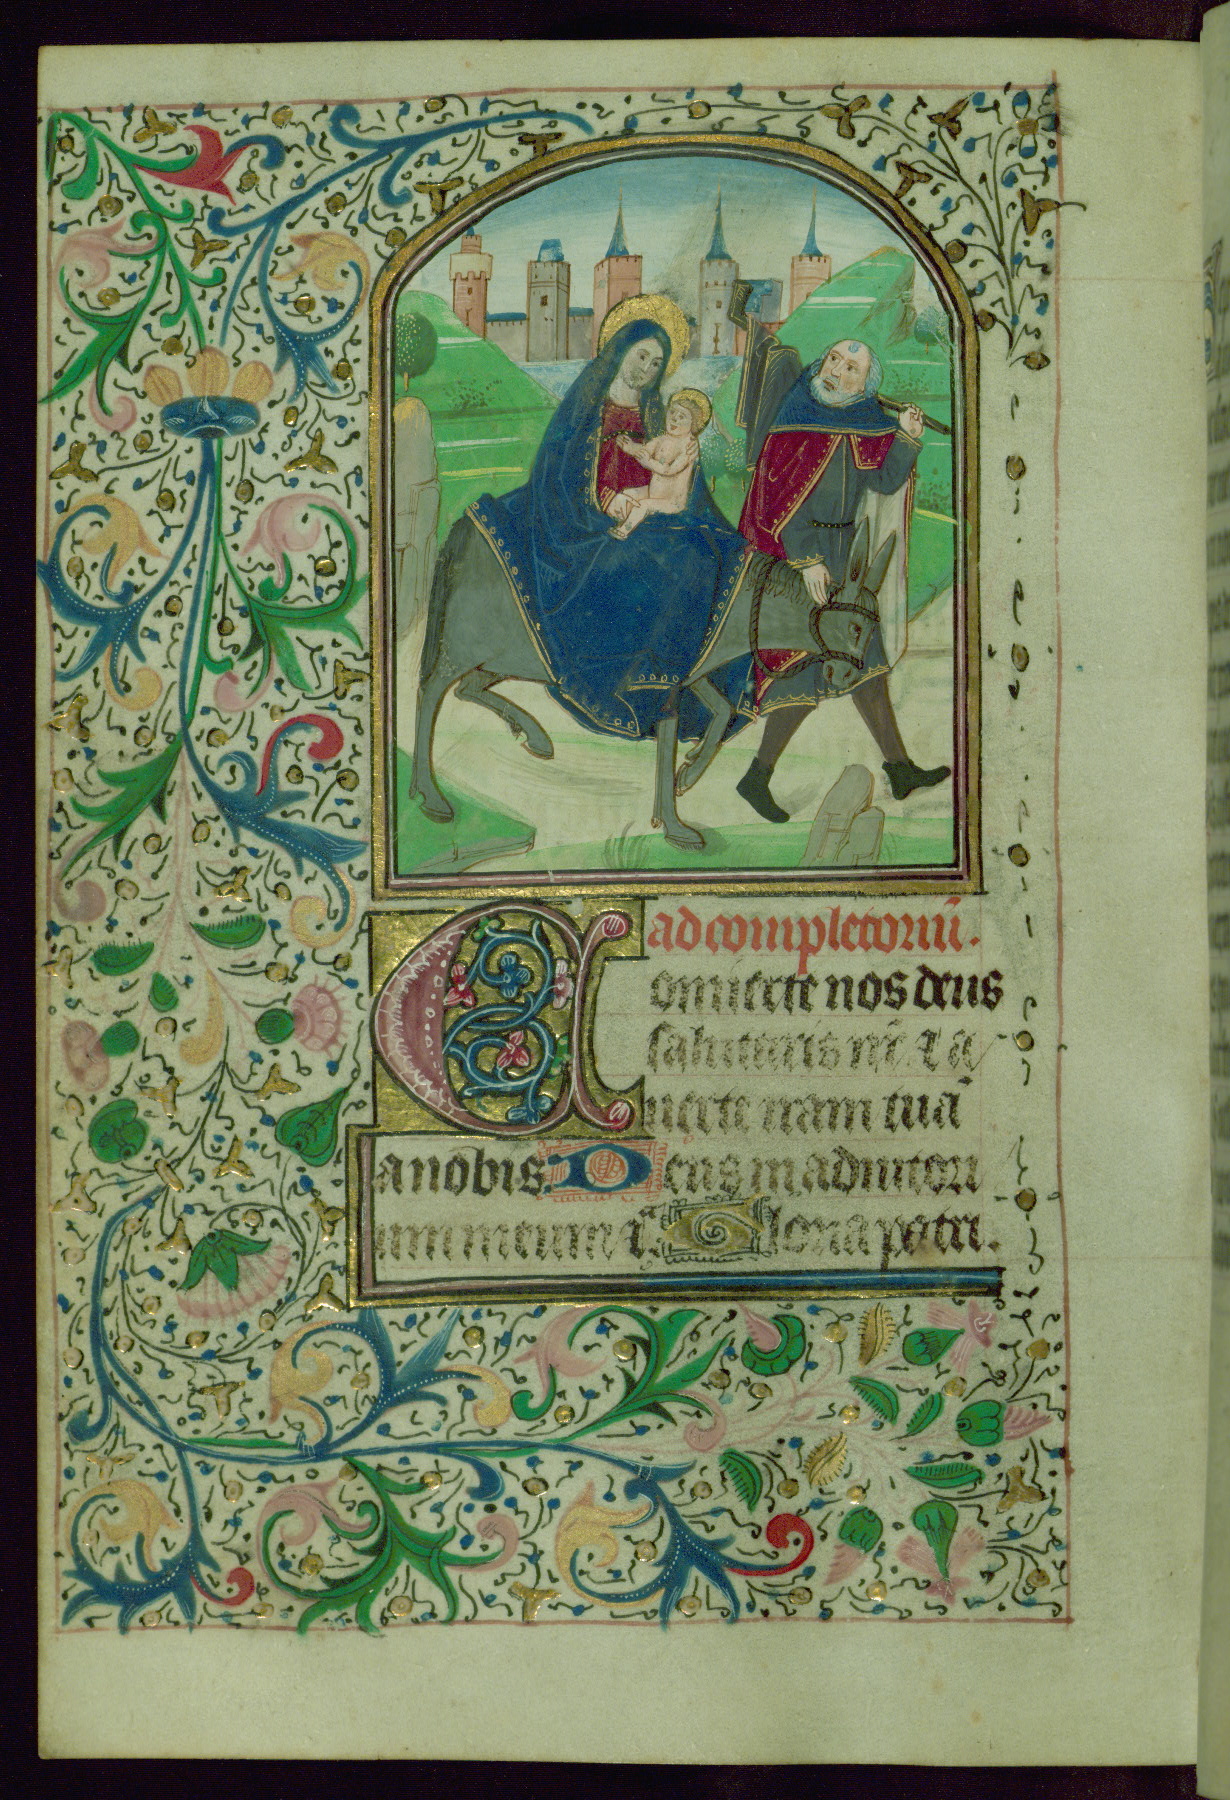 ad completoriu̅.
Conuerte nos deus
salutaris nr̅. Et a
uerte iram tuā
a nobis Deus in adiutori
um meum ī. Gloria patri.